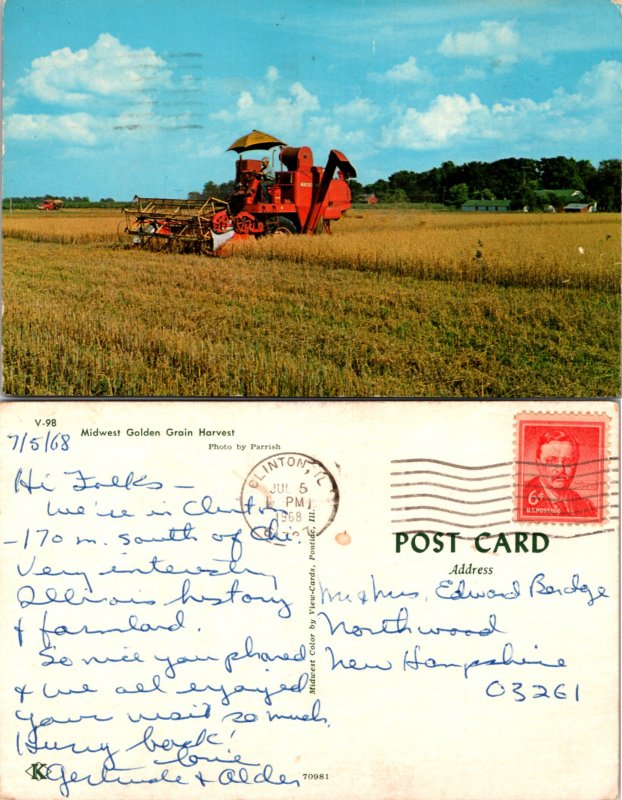 V-98
Midwest Golden Grain Harvest
Photo by Parrish
7/5/68
Hi Folks -
We're in Clinton
-170 m. south of Chi.
Very interesting
Illinois history
& farmland.
So nice you phoned
& we all enjoyed
your visit so much.
Hurry back!
Love
Gertrude & Alder
K
70981
Midwest Color by View-Cards, Pontiac, Ill.
CLINTON, IL
JUL 5
PM
1968
6¢
U.S. POSTAGE
POST CARD
Address
Mr & Mrs. Edward
Northwood
New Hampshire
03261